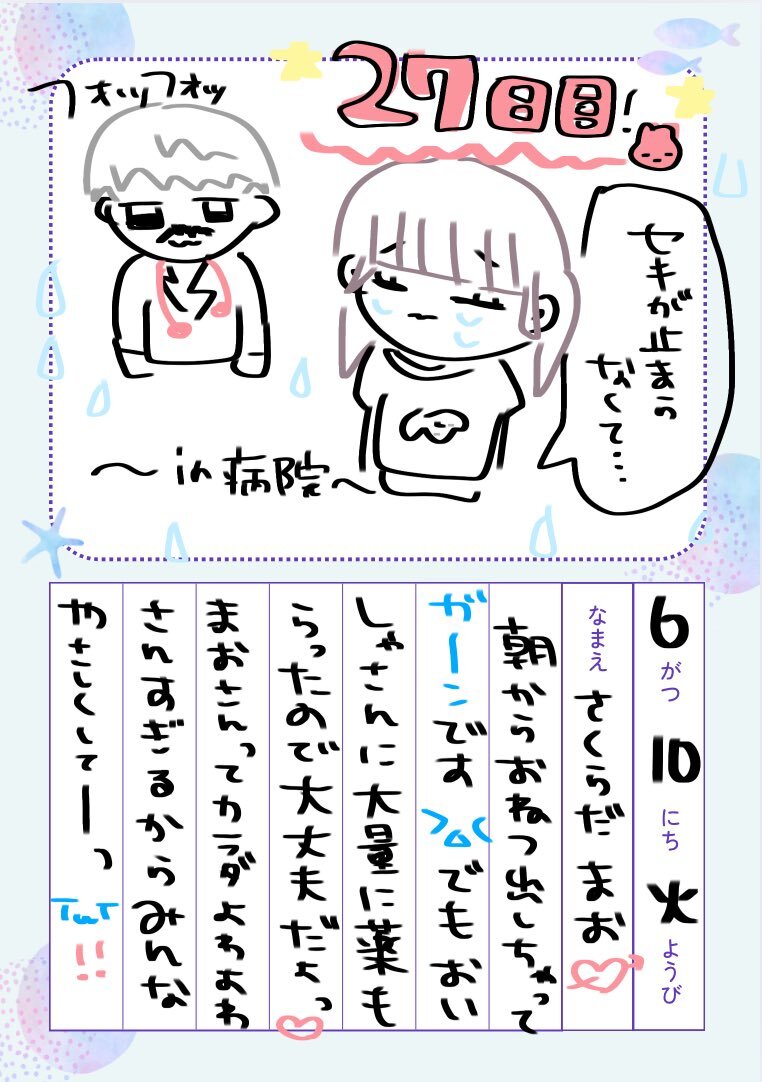 27日目!
フォッフォッ
セキが止まら
なくて…
〜in病院〜
6がつ10にち火ようび
なまえ さくらだ まお
朝からおねつ出しちゃって
ガーンです >_<でも おい
しゃさんに大量に薬も
らったので大丈夫だよっ
まおさんってカラダよわよわ
さんすぎるからみんな
やさしくしてーっ TωT!!